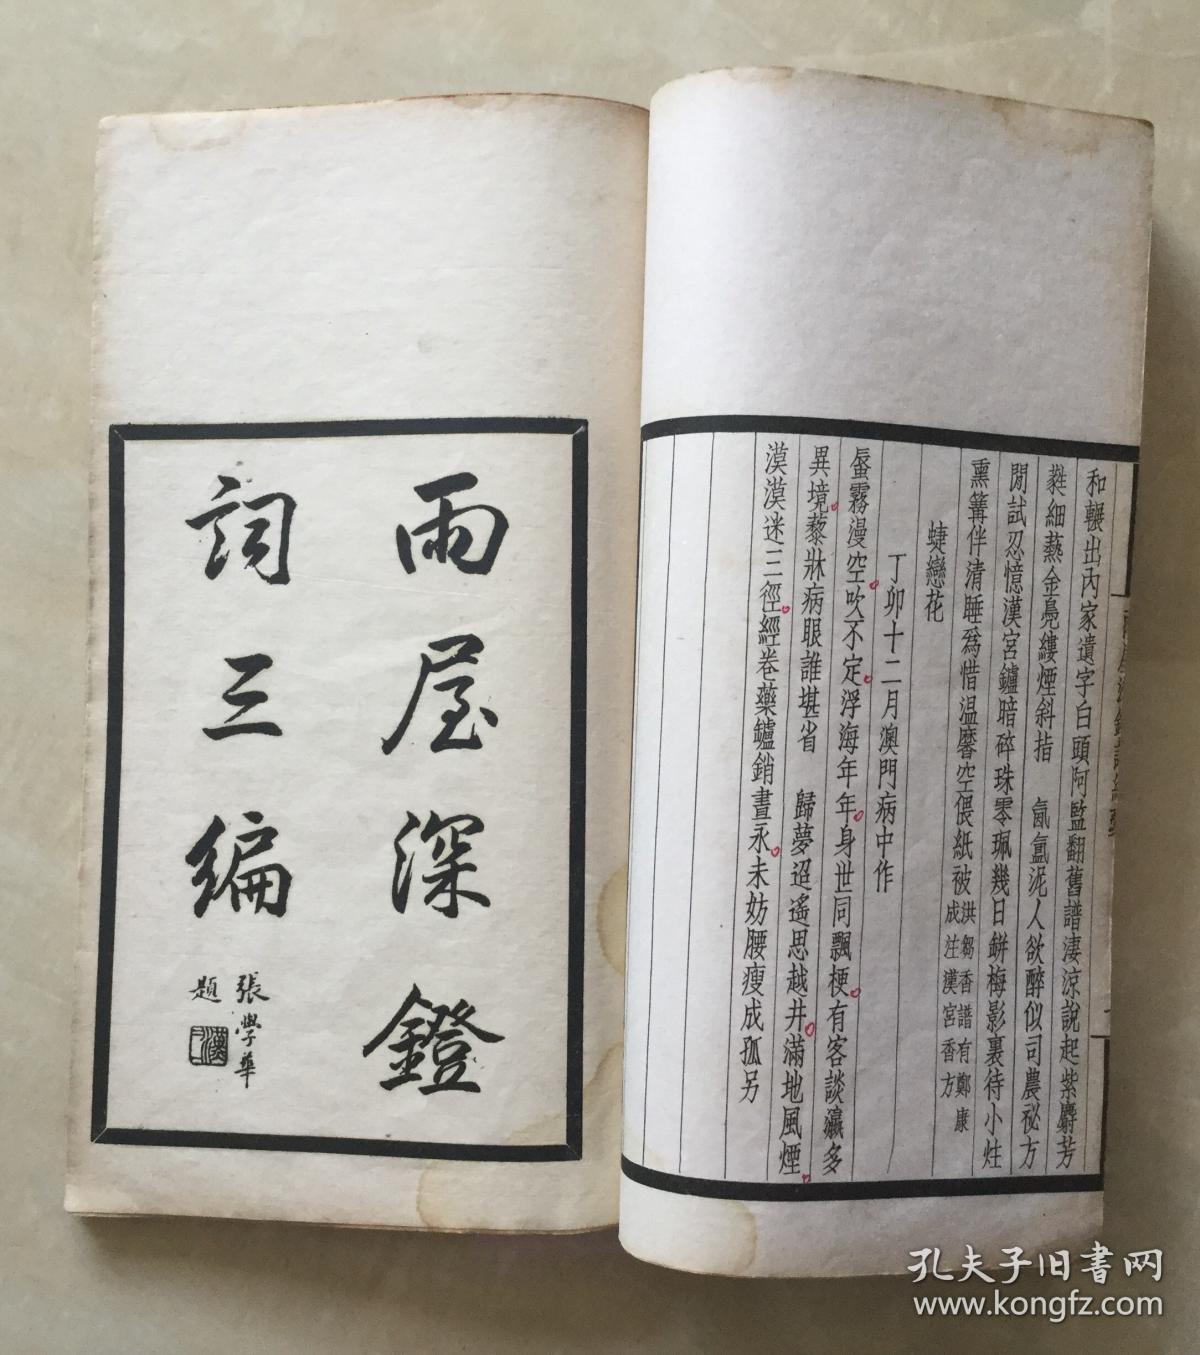 和輾出內家遺字白頭阿監翻舊譜淒涼說起紫麝芳
蕤細爇金鳧縷煙斜指 氤氳泥人欲醉似司農祕方
閒試忍憶漢宮鑪暗碎珠零珮幾日缾梅影裏待小炷
熏篝伴清睡爲惜温馨空偎紙被洪芻香譜有鄭康
成注漢宮香方
蜨戀花
丁卯十二月澳門病中作
蜃霧漫空吹不定浮海年年身世同飄梗有客談瀛多
異境藜牀病眼誰堪省 歸夢迢遙思越井滿地風煙
漠漠迷三徑經卷藥鑪銷晝永未妨腰瘦成孤另
雨屋深鐙
詞三編
張學華
題
孔夫子旧書网
www.kongfz.com